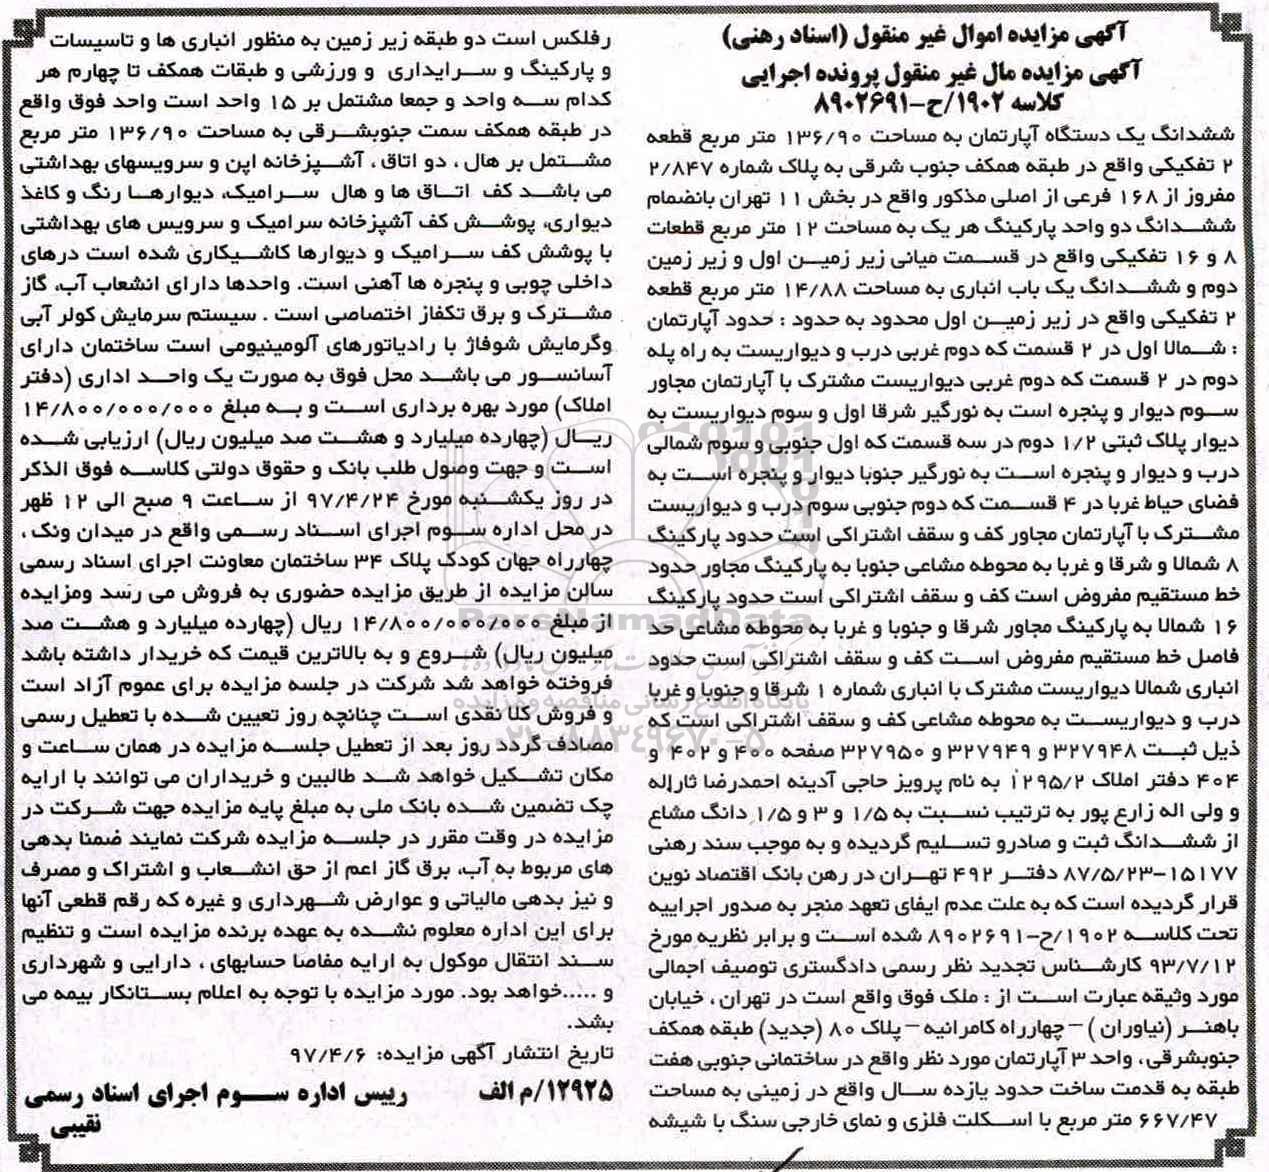 آگهی مزایده اموال غیر منقول (اسناد رهنی)
آگهی مزایده مال غیر منقول پرونده اجرایی
کلاسه ۱۹۰۲/ح-۸۹۰۲۶۹۱
ششدانگ یک دستگاه آپارتمان به مساحت ۱۳۶/۹۰ متر مربع قطعه
۲ تفکیکی واقع در طبقه همکف جنوب شرقی به پلاک شماره ۲/۸۴۷
مفروز از ۱۶۸ فرعی از اصلی مذکور واقع در بخش ۱۱ تهران بانضمام
ششدانگ دو واحد پارکینگ هر یک به مساحت ۱۲ متر مربع قطعات
۸ و ۱۶ تفکیکی واقع در قسمت میانی زیر زمین اول و زیر زمین
دوم و ششدانگ یک باب انباری به مساحت ۱۴/۸۸ متر مربع قطعه
۲ تفکیکی واقع در زیر زمین اول محدود به حدود : حدود آپارتمان
: شمالا اول در ۲ قسمت که دوم غربی درب و دیواریست به راه پله
دوم در ۲ قسمت که دوم غربی دیواریست مشترک با آپارتمان مجاور
سوم دیوار و پنجره است به نورگیر شرقا اول و سوم دیواریست به
دیوار پلاک ثبتی ۱/۲ دوم در سه قسمت که اول جنوبی و سوم شمالی
درب و دیوار و پنجره است به نورگیر جنوبا دیوار و پنجره است به
فضای حیاط غربا در ۴ قسمت که دوم جنوبی سوم درب و دیواریست
مشترک با آپارتمان مجاور کف و سقف اشتراکی است حدود پارکینگ
۸ شمالا و شرقا و غربا به محوطه مشاعی جنوبا به پارکینگ مجاور حدود
خط مستقیم مفروض است کف و سقف اشتراکی است حدود پارکینگ
۱۶ شمالا به پارکینگ مجاور شرقا و جنوبا و غربا به محوطه مشاعی حد
فاصل خط مستقیم مفروض است کف و سقف اشتراکی است حدود
انباری شمالا دیواریست مشترک با انباری شماره ۱ شرقا و جنوبا و غربا
درب و دیواریست به محوطه مشاعی کف و سقف اشتراکی است که
ذیل ثبت ۳۲۷۹۴۸ و ۳۲۷۹۴۹ و ۳۲۷۹۵۰ صفحه ۴۰۰ و ۴۰۲ و
۴۰۴ دفتر املاک ۱۲۹۵/۲ به نام پرویز حاجی آدینه احمدرضا ثاراله
و ولی اله زارع پور به ترتیب نسبت به ۱/۵ و ۳ و ۱/۵ دانگ مشاع
از ششدانگ ثبت و صادرو تسلیم گردیده و به موجب سند رهنی
۱۵۱۷۷-۸۷/۵/۲۳ دفتر ۴۹۲ تهران در رهن بانک اقتصاد نوین
قرار گردیده است که به علت عدم ایفای تعهد منجر به صدور اجراییه
تحت کلاسه ۱۹۰۲/ح-۸۹۰۲۶۹۱ شده است و برابر نظریه مورخ
۹۳/۷/۱۲ کارشناس تجدید نظر رسمی دادگستری توصیف اجمالی
مورد وثیقه عبارت است از : ملک فوق واقع است در تهران ، خیابان
باهنر (نیاوران ) – چهارراه کامرانیه – پلاک ۸۰ (جدید) طبقه همکف
جنوبشرقی ، واحد ۳ آپارتمان مورد نظر واقع در ساختمانی جنوبی هفت
طبقه به قدمت ساخت حدود یازده سال واقع در زمینی به مساحت
۶۶۷/۴۷ متر مربع با اسکلت فلزی و نمای خارجی سنگ با شیشه
رفلکس است دو طبقه زیر زمین به منظور انباری ها و تاسیسات
و پارکینگ و سرایداری و ورزشی و طبقات همکف تا چهارم هر
کدام سه واحد و جمعا مشتمل بر ۱۵ واحد است واحد فوق واقع
در طبقه همکف سمت جنوبشرقی به مساحت ۱۳۶/۹۰ متر مربع
مشتمل بر هال ، دو اتاق ، آشپزخانه اپن و سرویسهای بهداشتی
می باشد کف اتاق ها و هال سرامیک، دیوارها رنگ و کاغذ
دیواری، پوشش کف آشپزخانه سرامیک و سرویس های بهداشتی
با پوشش کف سرامیک و دیوارها کاشیکاری شده است درهای
داخلی چوبی و پنجره ها آهنی است. واحدها دارای انشعاب آب، گاز
مشترک و برق تکفاز اختصاصی است . سیستم سرمایش کولر آبی
وگرمایش شوفاژ با رادیاتورهای آلومینیومی است ساختمان دارای
آسانسور می باشد محل فوق به صورت یک واحد اداری (دفتر
املاک) مورد بهره برداری است و به مبلغ ۱۴/۸۰۰/۰۰۰/۰۰۰
ریال (چهارده میلیارد و هشت صد میلیون ریال) ارزیابی شده
است و جهت وصول طلب بانک و حقوق دولتی کلاسه فوق الذکر
در روز یکشنبه مورخ ۹۷/۴/۲۴ از ساعت ۹ صبح الی ۱۲ ظهر
در محل اداره سوم اجرای اسناد رسمی واقع در میدان ونک ،
چهارراه جهان کودک پلاک ۳۴ ساختمان معاونت اجرای اسناد رسمی
سالن مزایده از طریق مزایده حضوری به فروش می رسد ومزایده
از مبلغ ۱۴/۸۰۰/۰۰۰/۰۰۰ ریال (چهارده میلیارد و هشت صد
میلیون ریال) شروع و به بالاترین قیمت که خریدار داشته باشد
فروخته خواهد شد شرکت در جلسه مزایده برای عموم آزاد است
و فروش کلا نقدی است چنانچه روز تعیین شده با تعطیل رسمی
مصادف گردد روز بعد از تعطیل جلسه مزایده در همان ساعت و
مکان تشکیل خواهد شد طالبین و خریداران می توانند با ارایه
چک تضمین شده بانک ملی به مبلغ پایه مزایده جهت شرکت در
مزایده در وقت مقرر در جلسه مزایده شرکت نمایند ضمنا بدهی
های مربوط به آب، برق گاز اعم از حق انشعاب و اشتراک و مصرف
و نیز بدهی مالیاتی و عوارض شهرداری و غیره که رقم قطعی آنها
برای این اداره معلوم نشده به عهده برنده مزایده است و تنظیم
سند انتقال موکول به ارایه مفاصا حسابهای ، دارایی و شهرداری
و .....خواهد بود. مورد مزایده با توجه به اعلام بستانکار بیمه می
بشد.
تاریخ انتشار آگهی مزایده: ۹۷/۴/۶
۱۲۹۲۵/م الف رییس اداره سوم اجرای اسناد رسمی
نقیبی
ParsNamadData
پایگاه اطلاع رسانی مناقصه و مزایده
۰۲۱-۸۸۳۴۹۶۷۰-۵